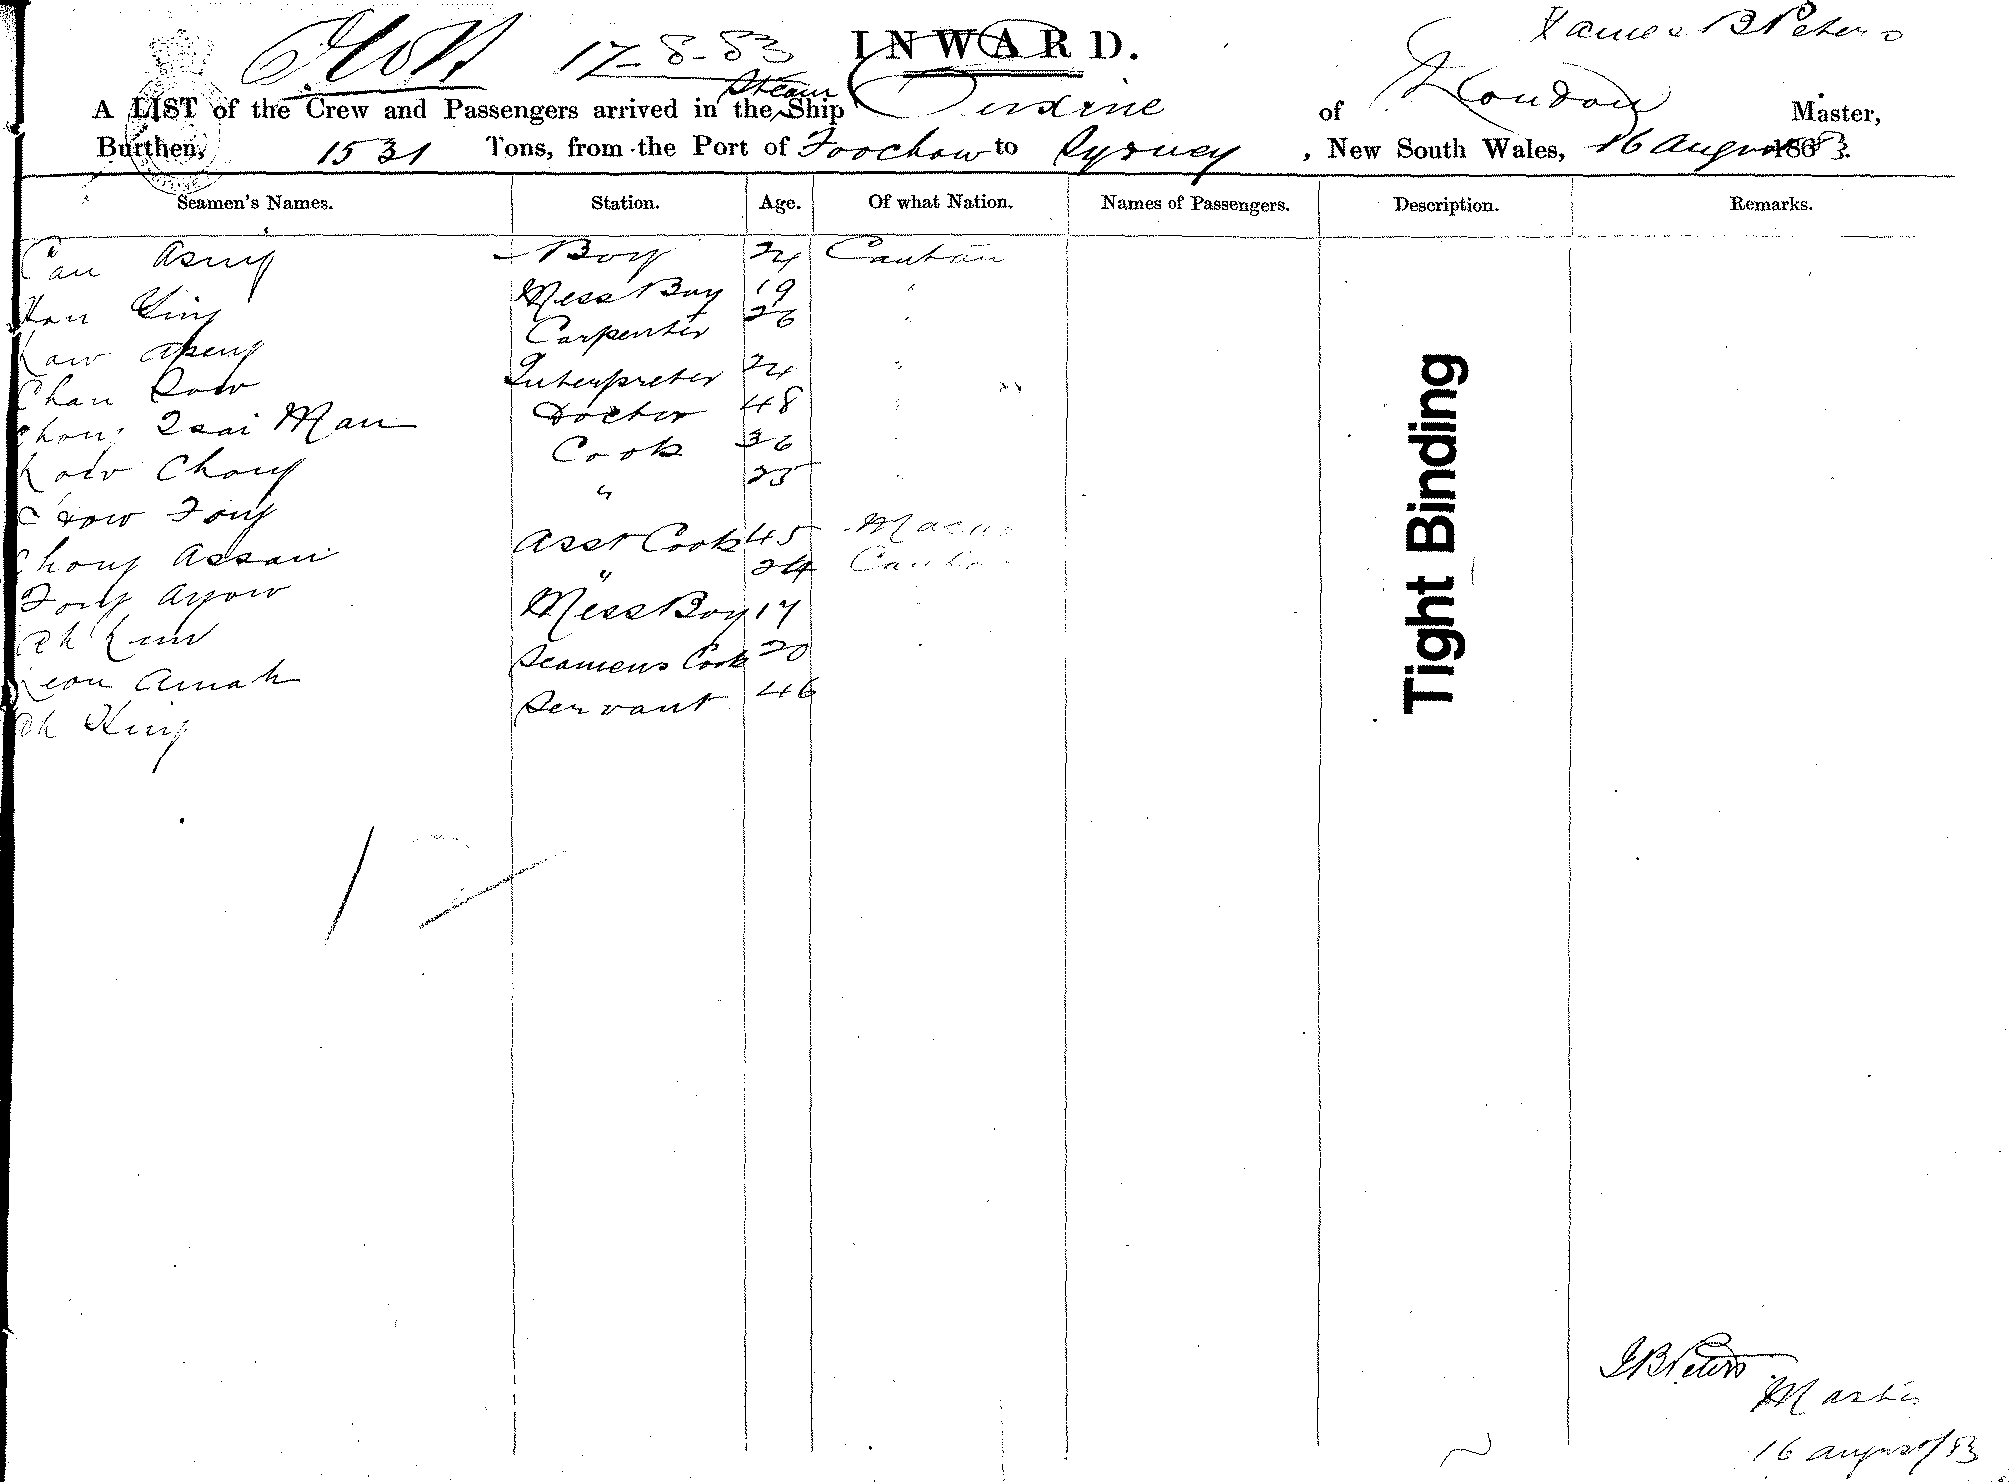 17-8-83 INWARD. James B Peters
A LIST of the Crew and Passengers arrived in the Steam Ship of London Master,
Burthen, 1531 Tons, from the Port of Foochow to Sydney, New South Wales, 16 August 1883.
Seamen's Names. Station. Age. Of what Nation. Names of Passengers. Description. Remarks.
Boy 24 Canton
Mess Boy 19 "
Carpenter 26 "
Chan Interpreter 24 "
Chong Tsai Man Doctor 48 "
Chong Cook 36 "
Fong " 25
Chong Assan Asst Cook 45 Macao
Fong " 24 Canton
Ah Mess Boy 17
Amah Seamens Cook 20
Ah King Servant 46
Tight Binding
J B Peters
Master
16 August / 83